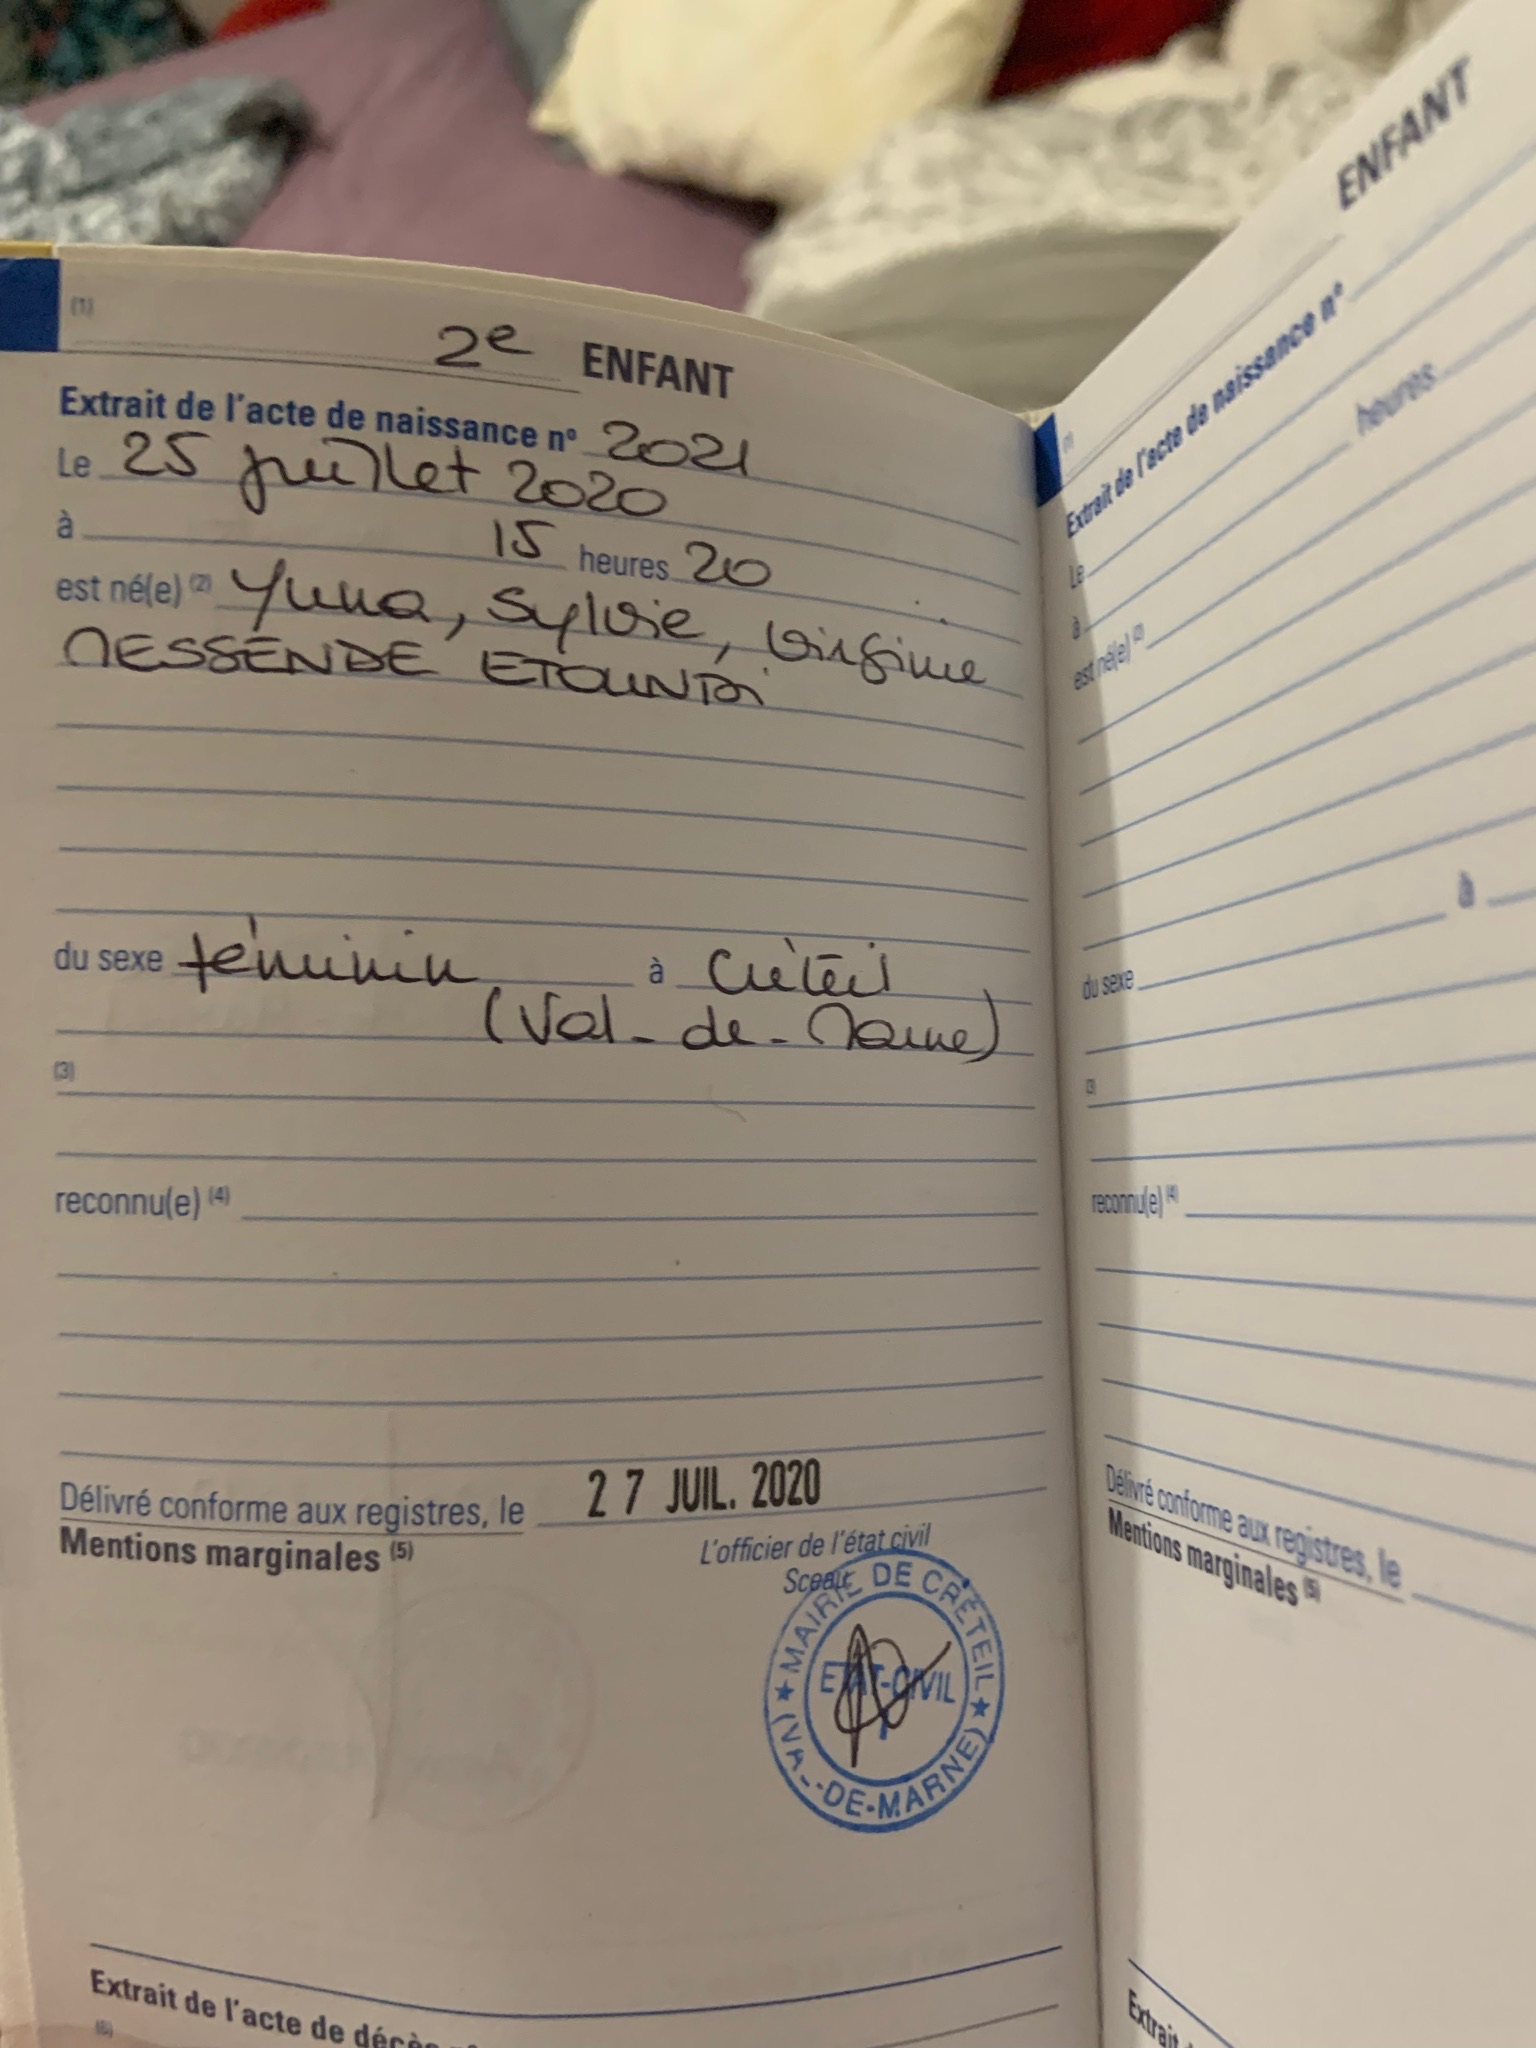 (1)
2e ENFANT
Extrait de l'acte de naissance n° 2021
Le 25 juillet 2020
à 15 heures 20
est né(e) (2) Yuna, Sylvie, Virginie
MESSENDE ETOUNDI
du sexe féminin à Créteil
(Val-de-Marne)
(3)
reconnu(e) (4)
Délivré conforme aux registres, le 27 JUIL. 2020
Mentions marginales (5)
L'officier de l'état civil
Sceau
★ MAIRIE DE CRÉTEIL ★
ETAT-CIVIL
(VAL-DE-MARNE)
Extrait de l'acte de décès
(6)
ENFANT
(1)
Extrait de l'acte de naissance n°
Le
à heures
est né(e) (2)
du sexe à
(3)
reconnu(e) (4)
Délivré conforme aux registres, le
Mentions marginales (5)
Extrait